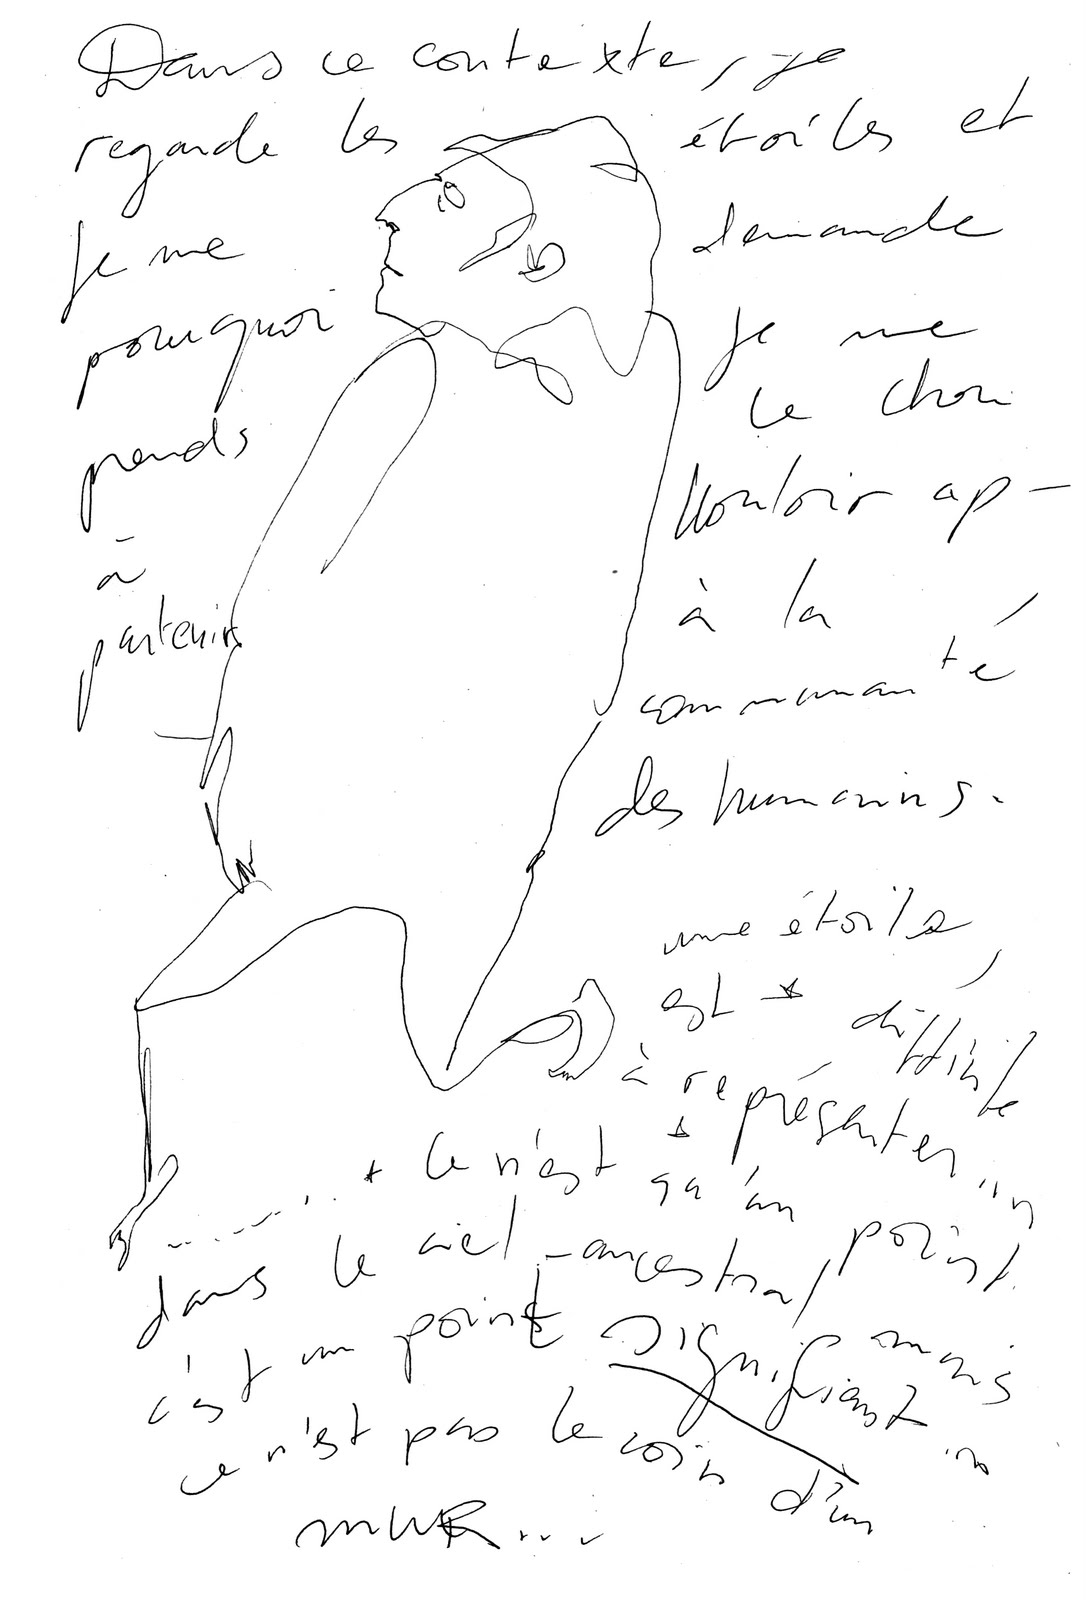 Dans ce contexte, je
regarde les étoiles et
je me demande
pourquoi je me
prends le chou
à vouloir ap-
partenir à la
communauté
des humains.
une étoile
est difficile
à représenter
ce n'est qu'un point
dans le ciel ancestral mais
c'est un point signifiant
ce n'est pas le coin d'un
MUR...